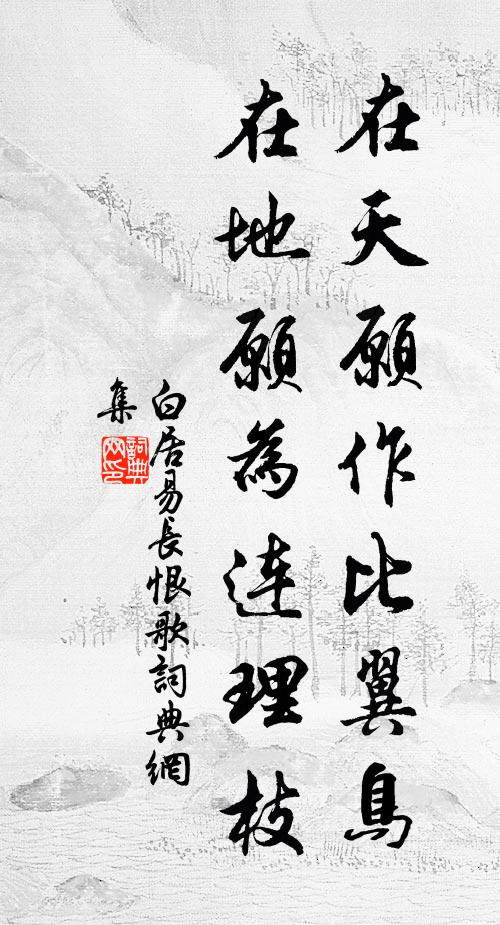 在天願作比翼鳥
在地願為連理枝
白居易長恨歌詞典網
集
詞典
网印